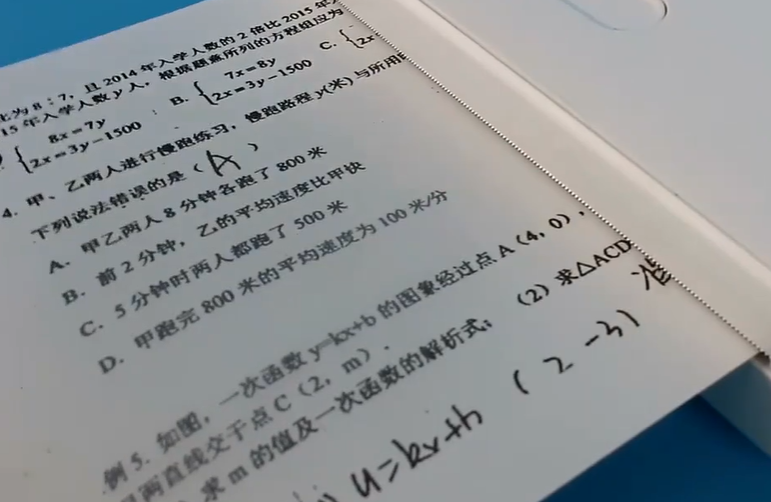 比为 8：7，且 2014 年入学人数的 2 倍比 2015 年
15 年入学人数 y 人，根据题意所列的方程组应为
{8x=7y 2x=3y−1500 B. {7x=8y 2x=3y−1500 C. {2x
4. 甲、乙两人进行慢跑练习，慢跑路程 y(米) 与所用
下列说法错误的是（A）
A. 甲乙两人 8 分钟各跑了 800 米
B. 前 2 分钟，乙的平均速度比甲快
C. 5 分钟时两人都跑了 500 米
D. 甲跑完 800 米的平均速度为 100 米/分
例 5. 如图，一次函数 y=kx+b 的图象经过点 A（4，0），
两直线交于点 C（2，m）．
求 m 的值及一次函数的解析式； （2）求△ACD
y=kx+b (2 -3)